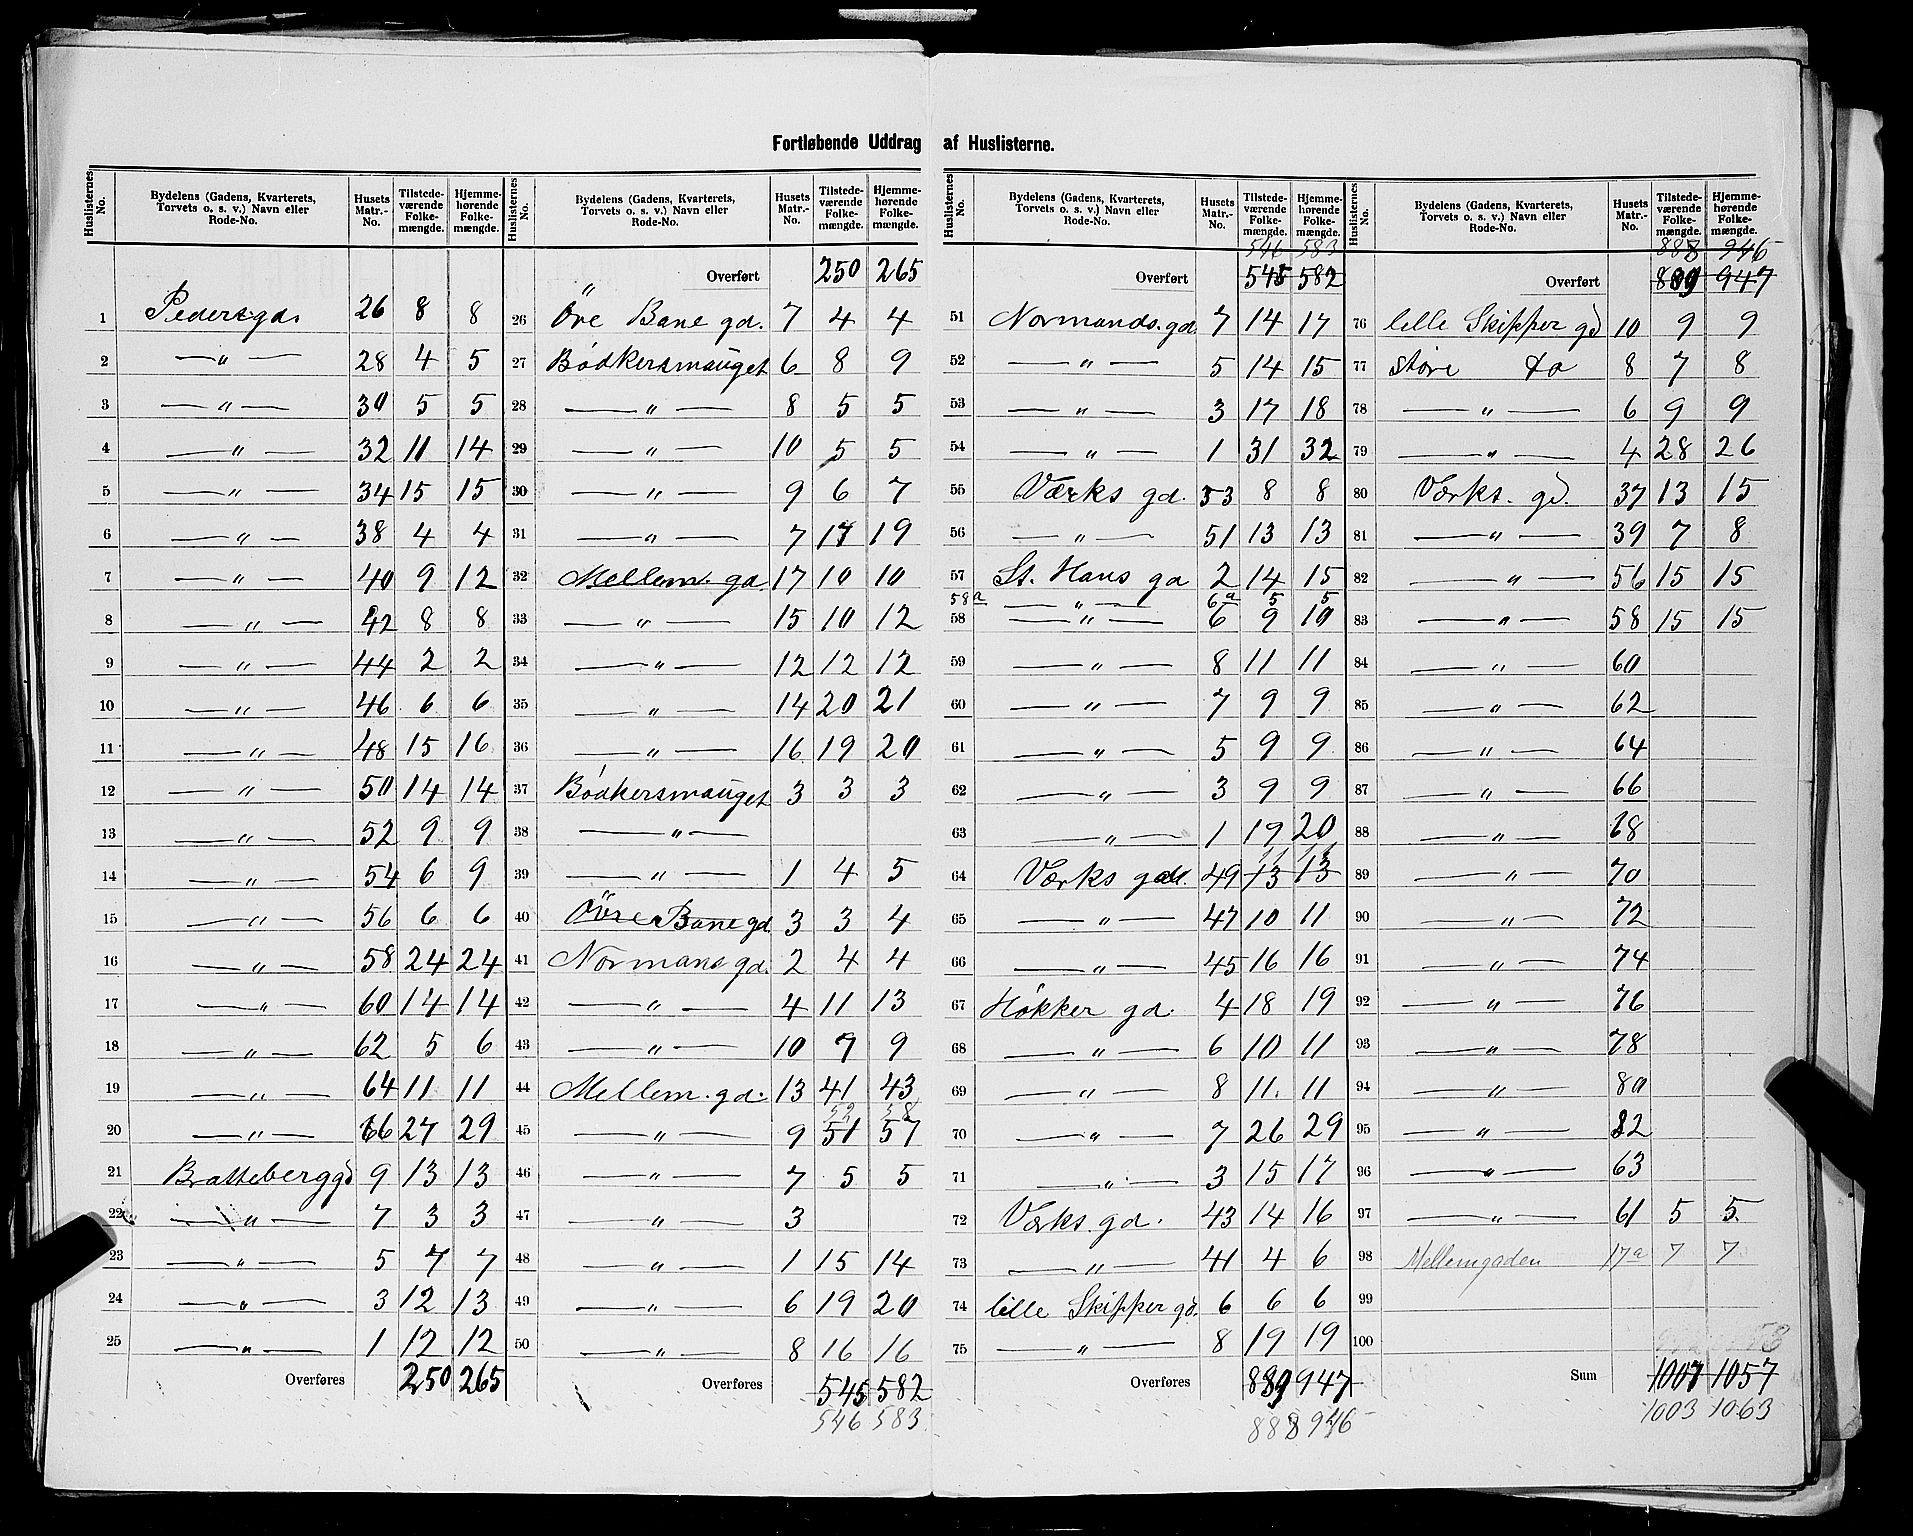 Fortløbende Uddrag af Huslisterne.
Huslisternes No. | Bydelens (Gadens, Kvarterets, Torvets o. s. v.) Navn eller Rode-No. | Husets Matr.-No. | Tilstedeværende Folkemængde. | Hjemmehørende Folkemængde.
1 Pedersgd. 26 8 8
2 —„— 28 4 5
3 —„— 30 5 5
4 —„— 32 11 14
5 —„— 34 15 15
6 —„— 38 4 4
7 —„— 40 9 12
8 —„— 42 8 8
9 —„— 44 2 2
10 —„— 46 6 6
11 —„— 48 15 16
12 —„— 50 14 14
13 —„— 52 9 9
14 —„— 54 6 9
15 —„— 56 6 6
16 —„— 58 24 24
17 —„— 60 14 14
18 —„— 62 5 6
19 —„— 64 11 11
20 —„— 66 27 29
21 Bratteberggd 9 13 13
22 —„— 7 3 3
23 —„— 5 7 7
24 —„— 3 12 13
25 —„— 1 12 12
Overføres 250 265
Huslisternes No. | Bydelens (Gadens, Kvarterets, Torvets o. s. v.) Navn eller Rode-No. | Husets Matr.-No. | Tilstedeværende Folkemængde. | Hjemmehørende Folkemængde.
„ Overført 250 265
26 Övre Bane gd. 7 4 4
27 Bödkersmauget 6 8 9
28 —„— 8 5 5
29 —„— 10 5 5
30 —„— 9 6 7
31 —„— 7 17 19
32 Mellem. gd. 17 10 10
33 —„— 15 10 12
34 —„— 12 12 12
35 —„— 14 20 21
36 —„— 16 19 20
37 Bödkersmauget 3 3 3
38 —„—
39 —„— 1 4 5
40 Övre Bane gd. 3 3 4
41 Normans gd. 2 4 4
42 —„— 4 11 13
43 —„— 10 7 9
44 Mellem. gd. 13 41 43
52 58
45 —„— 9 51 57
46 —„— 7 5 5
47 —„— 3
48 —„— 1 15 14
49 —„— 6 19 20
50 —„— 8 16 16
Overføres 545 582
546 583
Huslisternes No. | Bydelens (Gadens, Kvarterets, Torvets o. s. v.) Navn eller Rode-No. | Husets Matr.-No. | Tilstedeværende Folkemængde. | Hjemmehørende Folkemængde.
546 583
Overført 545 582
51 Normands. gd. 7 14 17
52 —„— 5 14 15
53 —„— 3 17 18
54 —„— 1 31 32
55 Værks gd. 53 8 8
56 —„— 51 13 13
57 St. Hans gd 2 14 15
58a —„— 6a 5 5
58 —„— 6 9 10
59 —„— 8 11 11
60 —„— 7 9 9
61 —„— 5 9 9
62 —„— 3 9 9
63 —„— 1 19 20
64 Værks gd. 49 13 13
65 —„— 47 10 11
66 —„— 45 16 16
67 Høkker gd. 4 18 19
68 —„— 6 10 11
69 —„— 8 11 11
70 —„— 7 26 29
71 —„— 3 15 17
72 Værks. gd. 43 14 16
73 —„— 41 4 6
74 lille Skipper gd. 6 6 6
75 —„— 8 19 19
Overføres 889 947
888 946
Huslisternes No. | Bydelens (Gadens, Kvarterets, Torvets o. s. v.) Navn eller Rode-No. | Husets Matr.-No. | Tilstedeværende Folkemængde. | Hjemmehørende Folkemængde.
888 946
Overført 889 947
76 lille Skipper gd 10 9 9
77 store do 8 7 8
78 —„— 6 9 9
79 —„— 4 28 26
80 Værks. gd. 37 13 15
81 —„— 39 7 8
82 —„— 56 15 15
83 —„— 58 15 15
84 —„— 60
85 —„— 62
86 —„— 64
87 —„— 66
88 —„— 68
89 —„— 70
90 —„— 72
91 —„— 74
92 —„— 76
93 —„— 78
94 —„— 80
95 —„— 82
96 —„— 63
97 —„— 61 5 5
98 Mellemgaden 17a 7 7
99
100
Sum 1007 1057
1003 1063